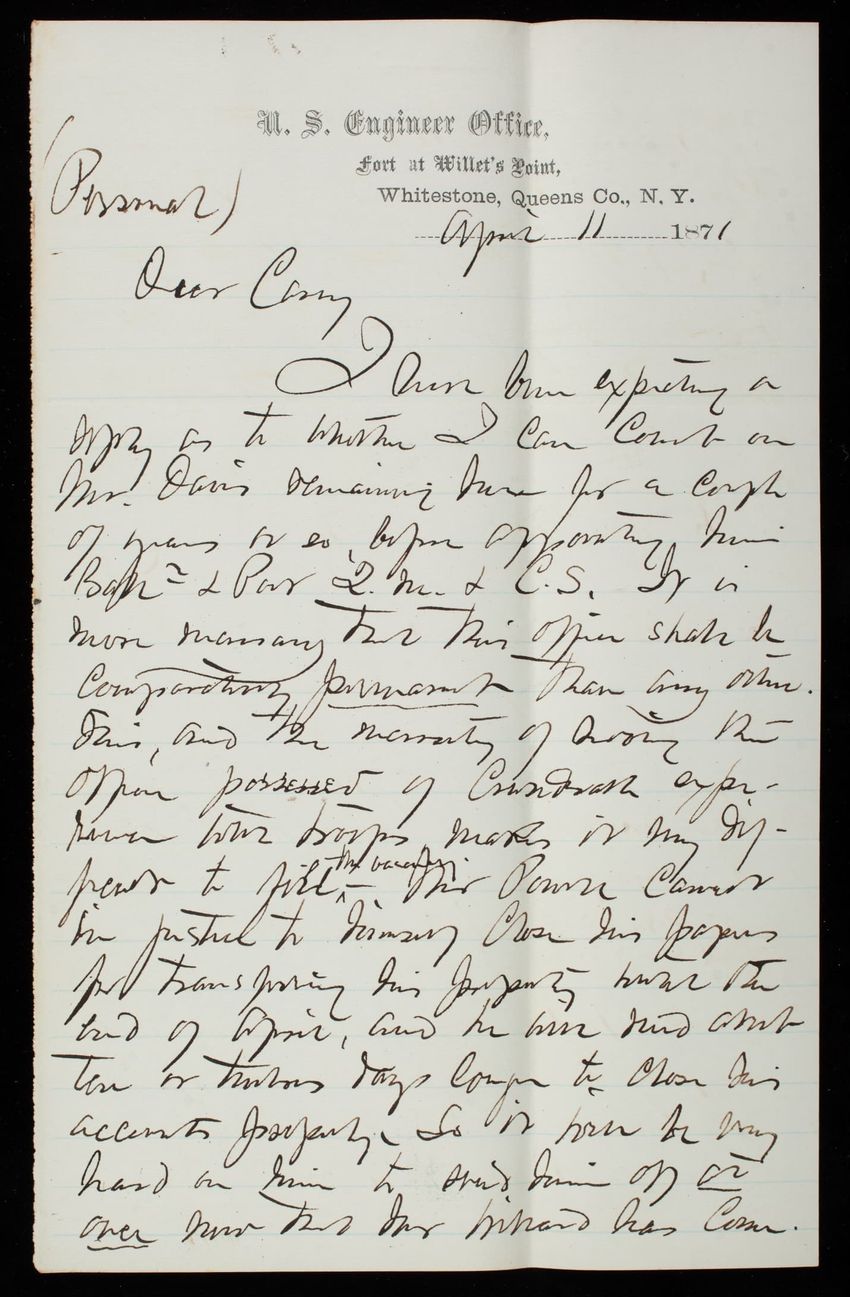 U. S. Engineer Office,
Fort at Willet's Point,
(Personal)
Whitestone, Queens Co., N. Y.
April 11 1871
Dear Casey
I have been expecting a
reply as to whether I can count on
Mr. Davis remaining here for a couple
of years or so, before appointing him
Batn & Post Q. M. & C. S. It is
more necessary that this officer shall be
comparatively permanent than any other.
This, and the necessity of having the
officer possessed of considerable expe-
rience with troops makes it very dif-
ficult to fill the vacancy. Mr Powell cannot
in justice to himself close his papers
for transferring his property until the
end of April, and he will need about
ten or twelve days longer to close his
accounts properly. So it will be very
hard on him to send him off at
once now that his has come.